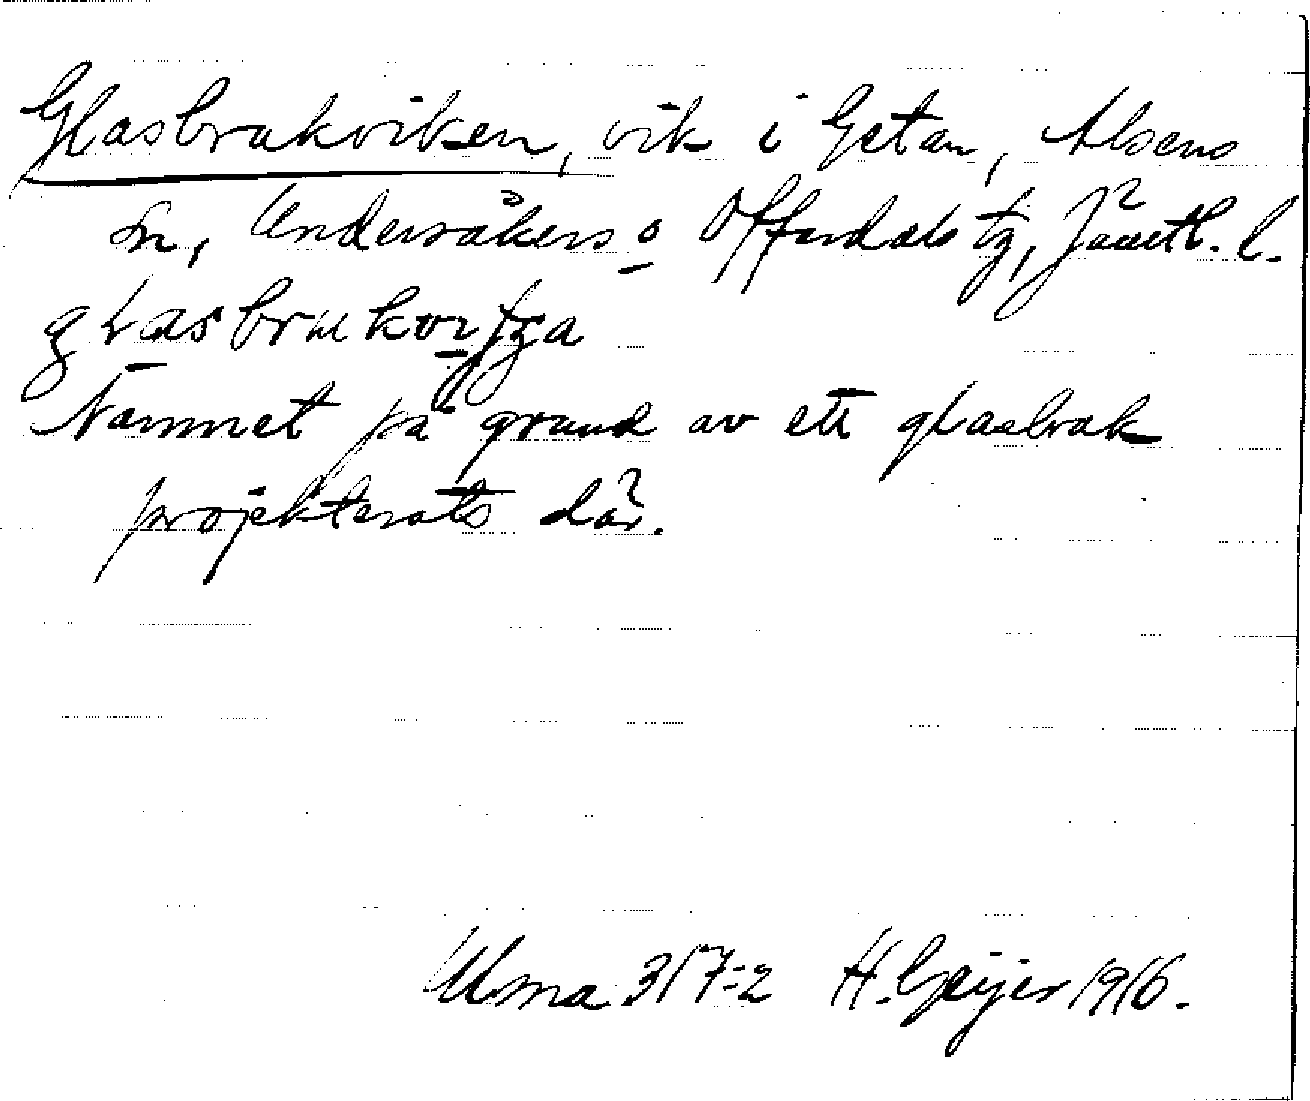 Glasbrukviken, vik i Getan, Alsens
sn, Undersåkers o Offerdals tg, Jämtl. l.
Namnet på grund av ett glasbruk
projekterats där.
Ulma 317:2 H. Geijer 1916.